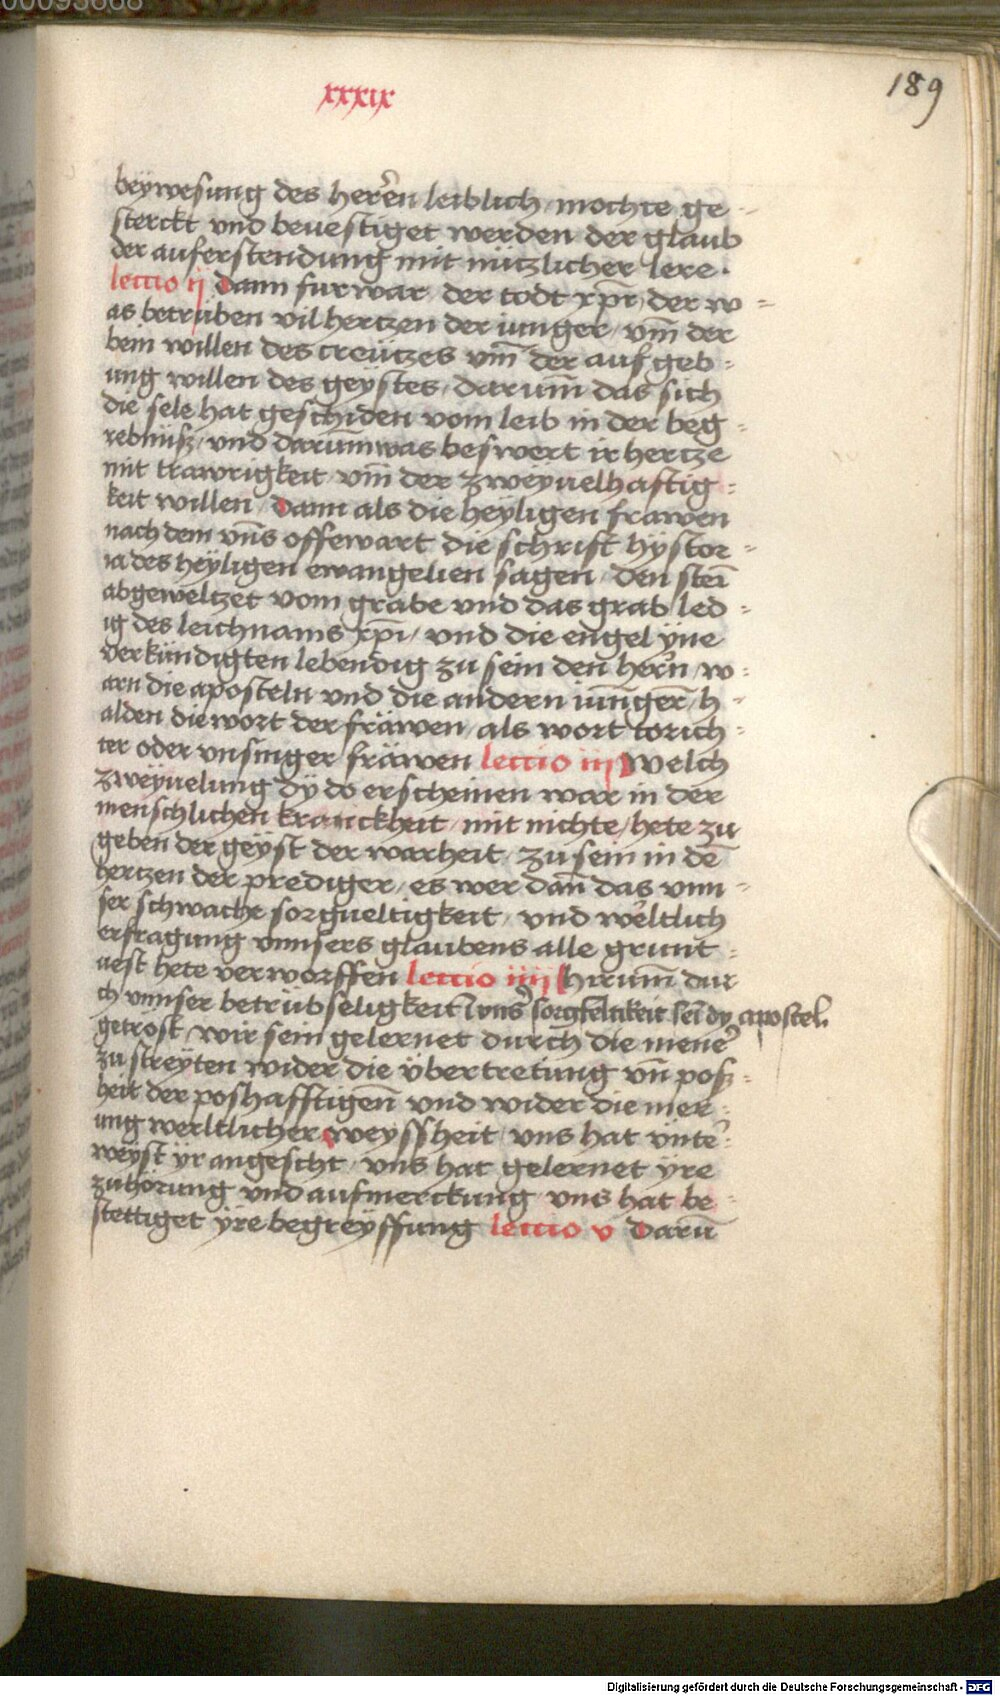 00093668
xxxix
189
beÿwesung des herren leiblich / mochte ge-
sterckt vnd beuestiget werden der glaub
der auferstendung mit nützlicher lere.
lectio ij Dann fur war der todt xp̄i / der w=
as betruben vil hertzen der iunger / vm̄ der
bein willen des creützes vm̄ der auf geb=
ung willen des geÿstes / darum̄ das sich
die sele hat geschiden vom leib in der beg=
rebnüsz / vnd darum̄ was beswert ir hertze
mit trawrigkeit / vm̄ der zweÿuelhafftig=
keit willen / Dann als die heÿligen frawen
nach dem vn̄s offewart die schrift hÿstor=
ia des heÿligen ewangelien sagen / den stei̅
abgeweltzet vom grabe vnd das grab led=
ig des leichnams xp̄i / vnd die engel ÿne
verkündigten lebendig zu sein den herñ / w=
arn die aposteln vnd die andern iun̄ger / h=
alden die wort der fräwen / als wort torich=
ter oder vnsinger fräwen lectio iij Welch
zweÿuelung dÿ do erscheinen war in der
menschlichen kranckheit / mit nichte / hete zu
geben der geÿst der warheit / zu sein in dē
hertzen der prediger / es wer dañ das vnn=
ser schwache sorgueltigkeit / vnd weltlich
erfragung vnnsers glaubens alle grunt=
uest hete verworffen lectio iiij Hirum̄ dur
ch vnnser betrübseligkeit vns' sorgfeltikeit sei̅ dy apostel.
getröst / wir sein gelernet durch die mene'
zu streÿten wider die übertretung vn̄ posz=
heit der poshafftigen̄ vnd wider die mer=
ung werltlicher weÿssheit / vns hat vnte'=
weÿst ÿr angescht / vns hat gelernet ÿre
zuhörung vnd aufmerckung vns hat be=
stettiget ÿre begreÿffung lectio v Darū
Digitalisierung gefördert durch die Deutsche Forschungsgemeinschaft - DFG